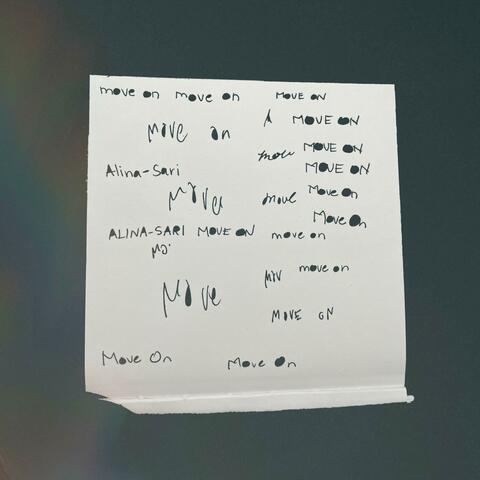 move on move on MOVE ON
MOVE ON
move on
move MOVE ON
MOVE ON
Alina-Sari
Move move Move On
Move On
ALINA-SARI MOVE ON move on
Mo
Mov move on
Move
MOVE ON
Move On Move On